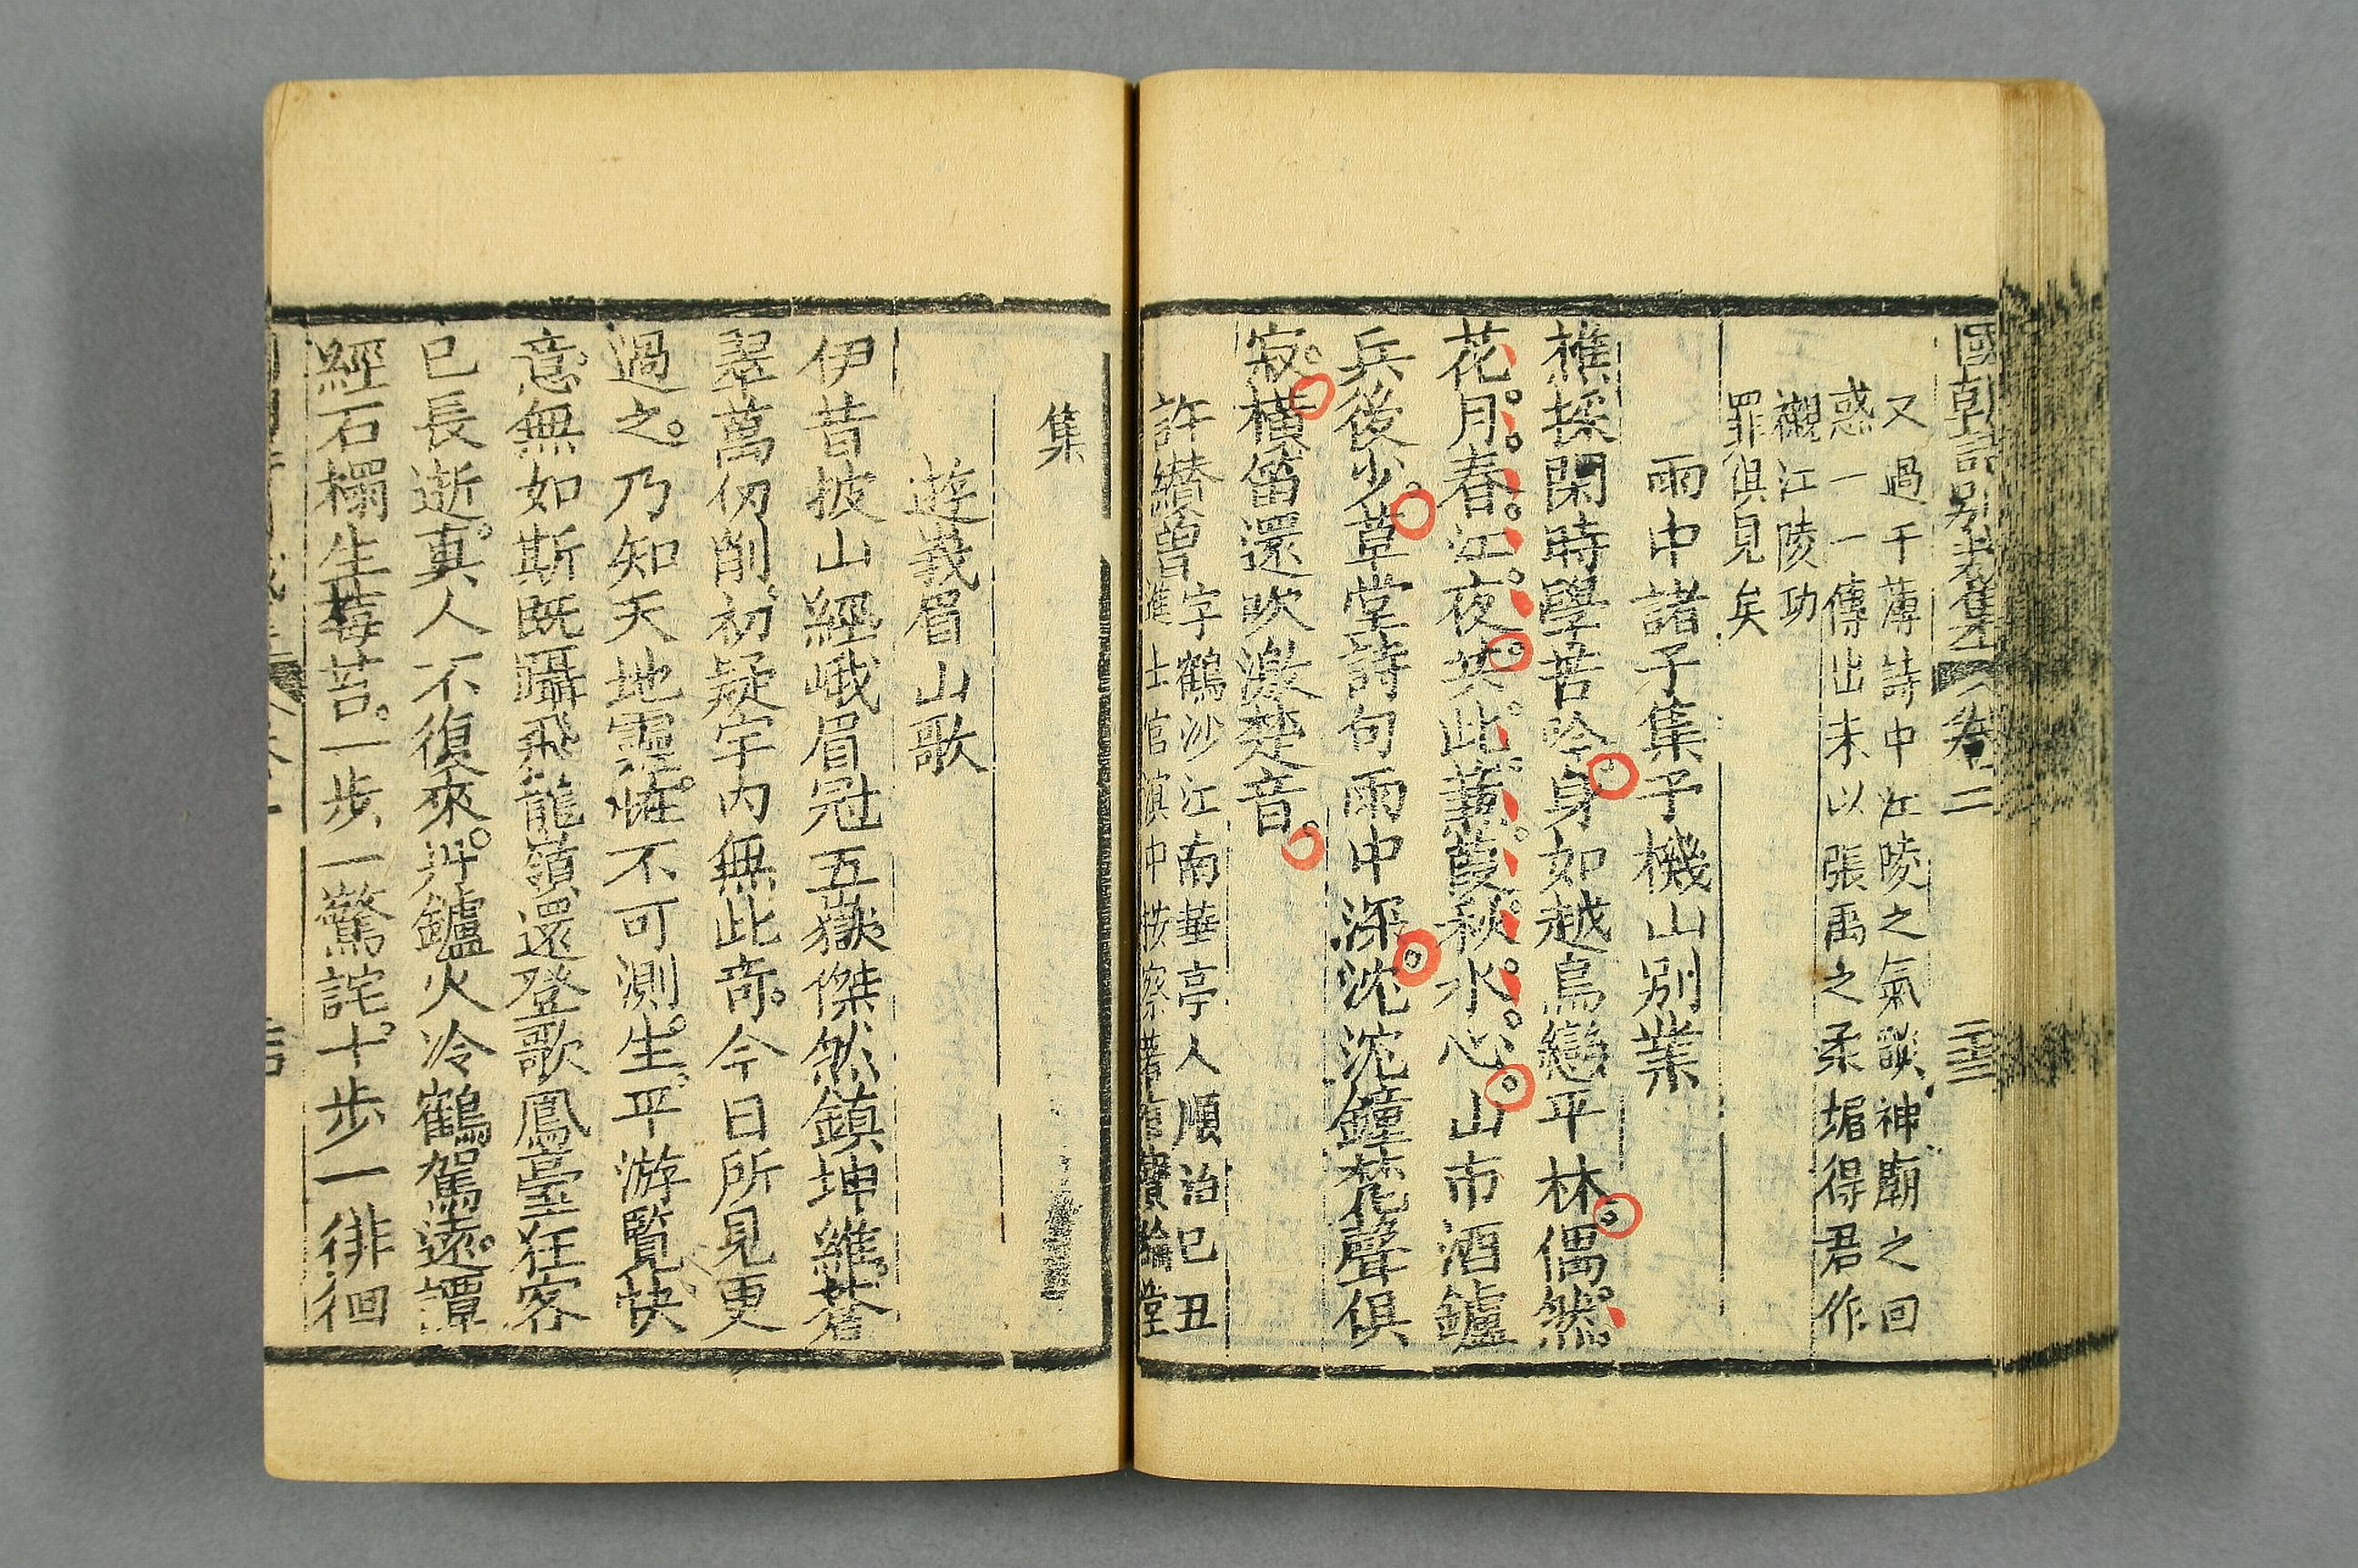 國朝詩別裁集 卷二 二十三
又過于薄詩中江陵之氣談神廟之回
惑一一傳出未以張禹之柔媚得君作
襯江陵功
罪俱見矣
雨中諸子集予機山別業
樵採閑時學苦吟身如越鳥戀平林偶然
花月春江夜笑此蒹葭秋水心山市酒鑪
兵後少草堂詩句雨中深沈沈鐘梵聲俱
寂橫笛還吹激楚音
許纘曾
字鶴沙江南華亭人順治己丑
進士官滇中按察著有寶綸堂
集
遊峩眉山歌
伊昔披山經峨眉冠五嶽傑然鎮坤維蒼
翠萬仞削初疑宇内無此奇今日所見更
過之乃知天地靈怪不可測生平游覽快
意無如斯既躡飛龍嶺還登歌鳳臺狂客
已長逝真人不復來丹鑪火冷鶴駕遠譚
經石榻生莓苔一步一驚詫十步一徘徊